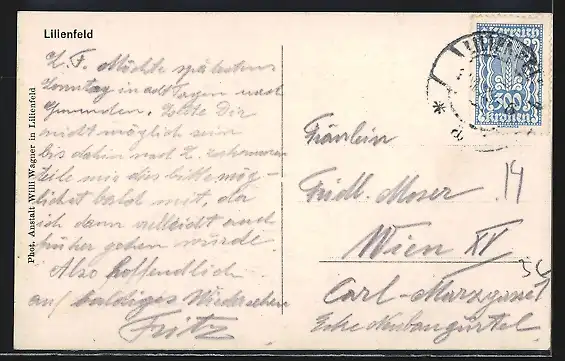 Lilienfeld
L. F. Möchte spätestens
Sonntag in acht Tagen nach
Gmunden. Sollte Dir
nicht möglich sein
bis dahin nach L. zu kommen
teile mir dies bitte mög-
lichst bald mit, da
ich dann vielleicht auch
früher gehen würde.
Also hoffendlich
auf baldiges Wiedersehen
Fritz
Phot. Anstalt Willi Wagner in Lilienfeld
LILIENFELD
Kronen
Fräulein
Fridl. Moser
14
Wien XV
Carl-Marxgasse
Ecke Neubaugürtel